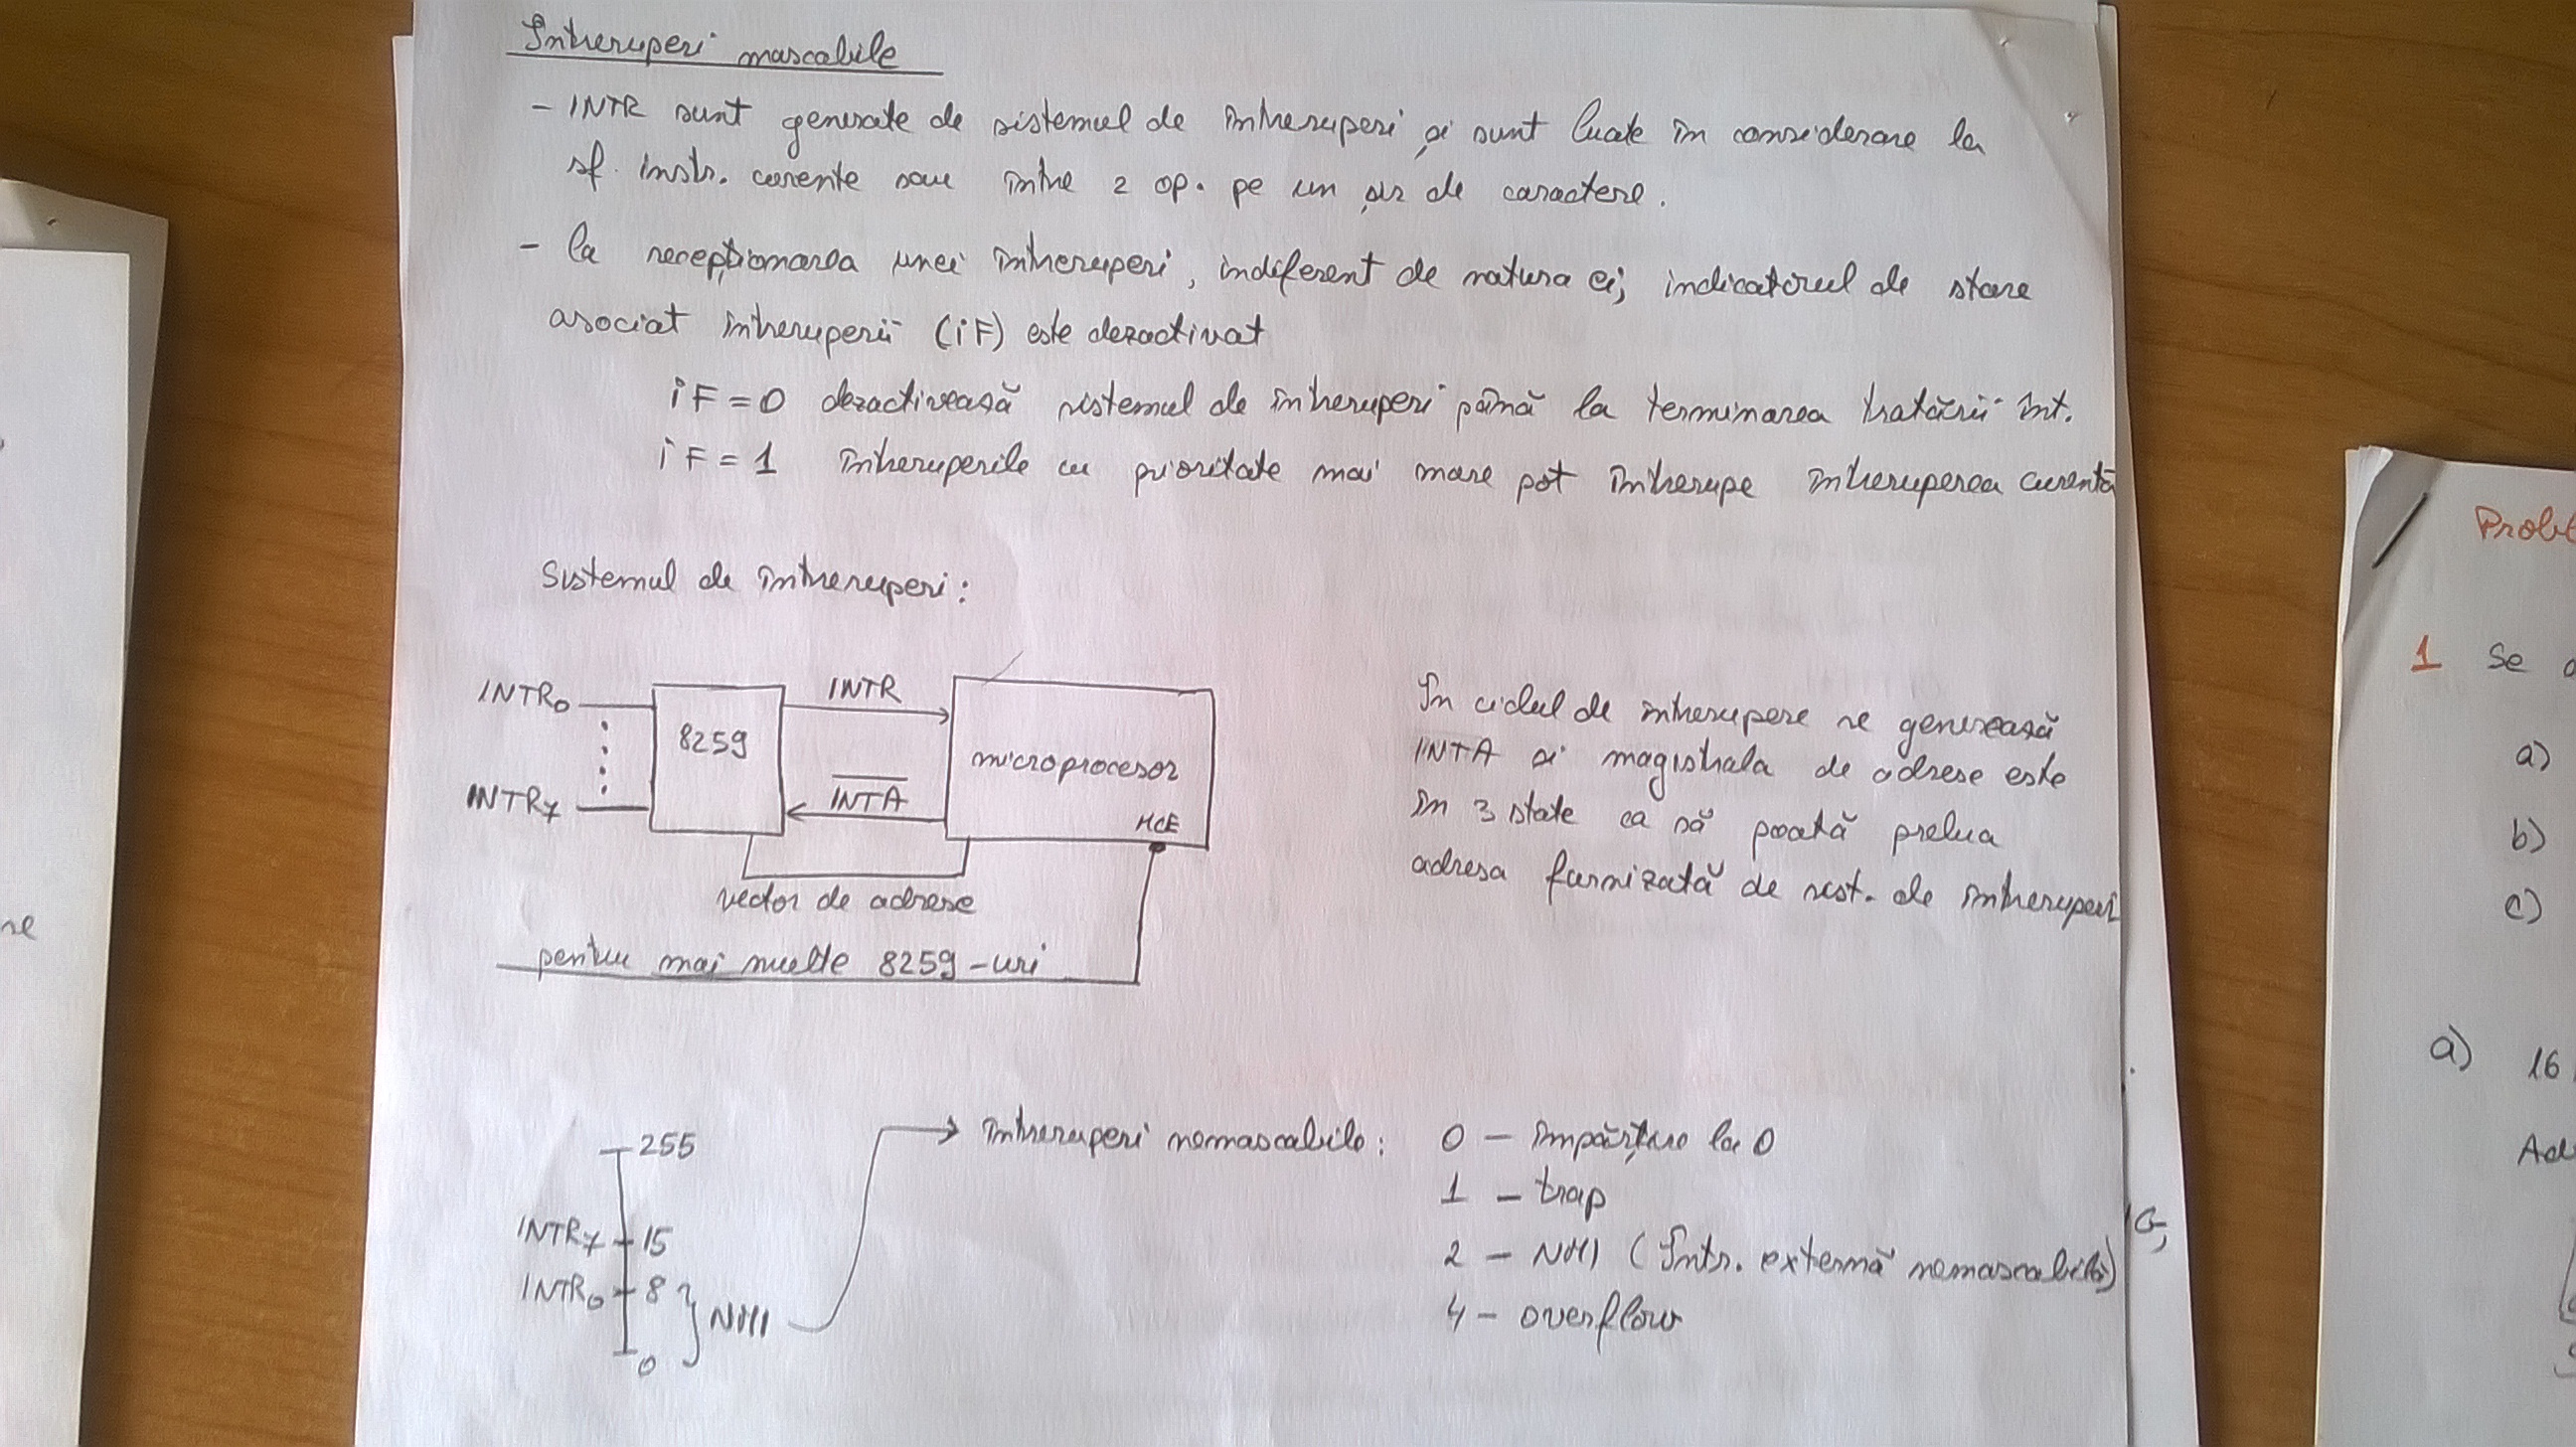 Întreruperi mascabile
- INTR sunt generate de sistemul de întreruperi și sunt luate în considerare la
sf. instr. curente sau între 2 op. pe un șir de caractere.
- la recepționarea unei întreruperi, indiferent de natura ei, indicatorul de stare
asociat întreruperii (iF) este dezactivat
iF = 0 dezactivează sistemul de întreruperi până la terminarea tratării înt.
iF = 1 întreruperile cu prioritate mai mare pot întrerupe întreruperea curentă
Sistemul de întreruperi:
INTR0
INTR7
8259
INTR
INTA
microprocesor
MCE
vector de adrese
pentru mai multe 8259-uri
În ciclul de întrerupere se generează
INTA și magistrala de adrese este
în 3 state ca să poată prelua
adresa furnizată de sist. de întreruperi
255
INTR7 15
INTR0 8
0
NMI
întreruperi nemascabile:
0 – împărțire la 0
1 – trap
2 – NMI (Intr. externă nemascabilă)
4 – overflow
ne
1 Se
a)
b)
c)
a) 16